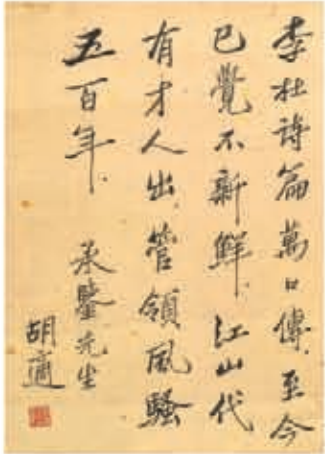 李杜詩篇萬口傳.至今
已覺不新鮮.江山代
有才人出.管領風騷
五百年.
承鑒先生
胡適